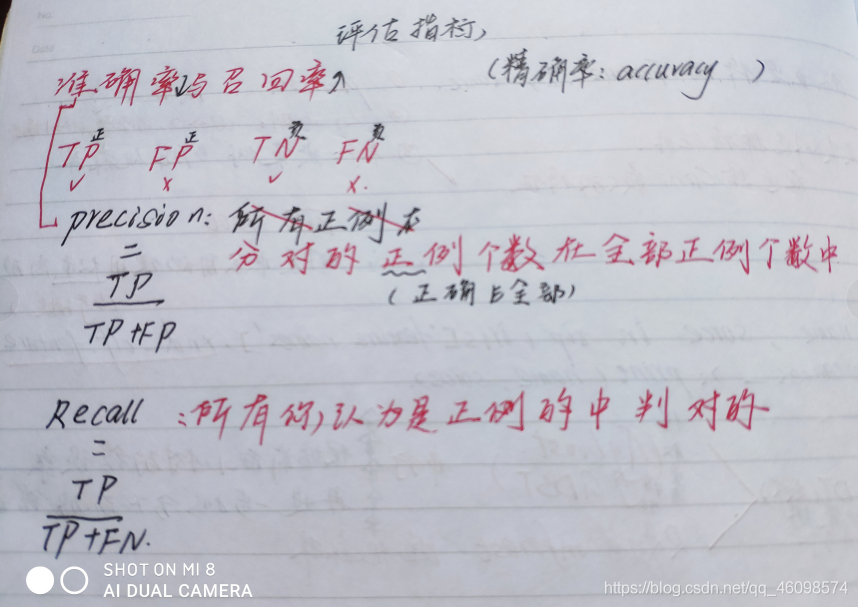 评估指标
准确率与召回率
(精确率: accuracy )
正 正 负 负
TP FP TN FN
✓ × ✓ ×.
precision: 所有正例点
= 分对的正例个数在全部正例个数中
TP (正确占全部)
TP+FP
Recall :所有你认为是正例的中判对的
=
TP
TP+FN.
SHOT ON MI 8
AI DUAL CAMERA
https://blog.csdn.net/qq_46098574